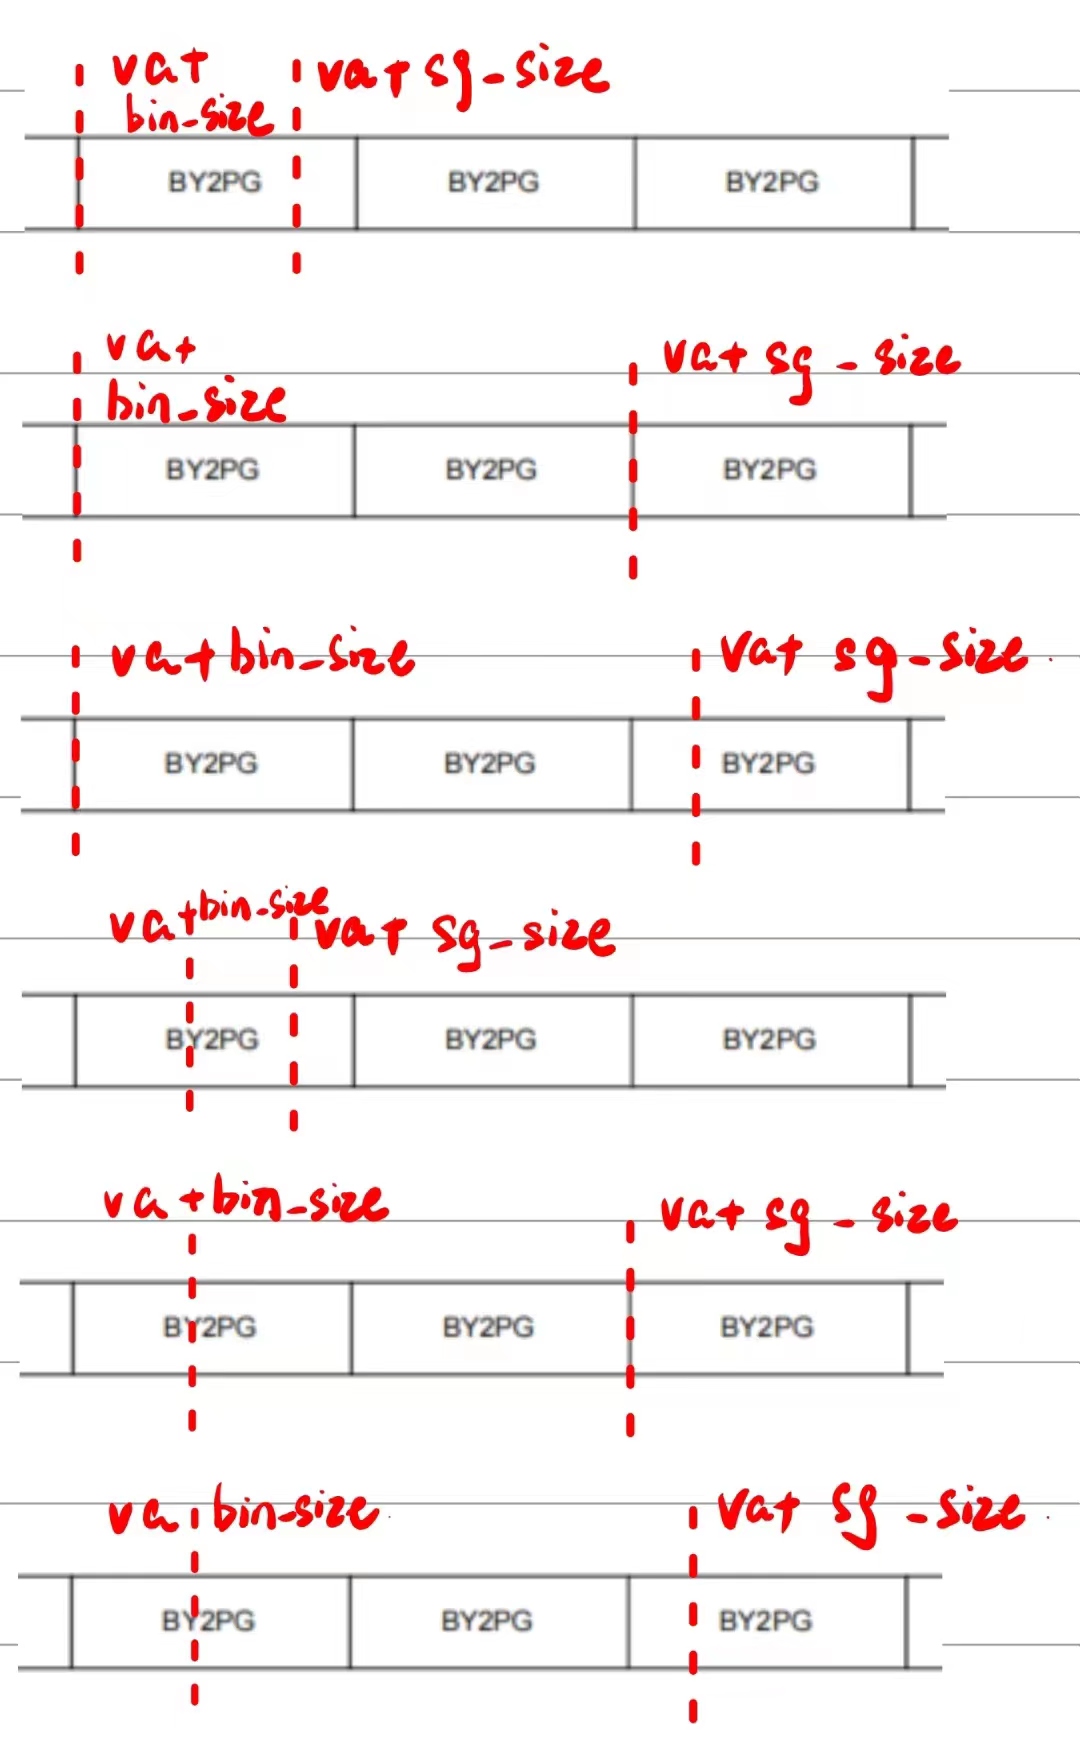 va+ va+ sg-size
bin-size
BY2PG BY2PG BY2PG
va+ va+ sg-size
bin-size
BY2PG BY2PG BY2PG
va+bin-size va+ sg-size
BY2PG BY2PG BY2PG
va+bin-size va+ sg-size
BY2PG BY2PG BY2PG
va+bin-size va+ sg-size
BY2PG BY2PG BY2PG
va bin-size va+ sg-size
BY2PG BY2PG BY2PG